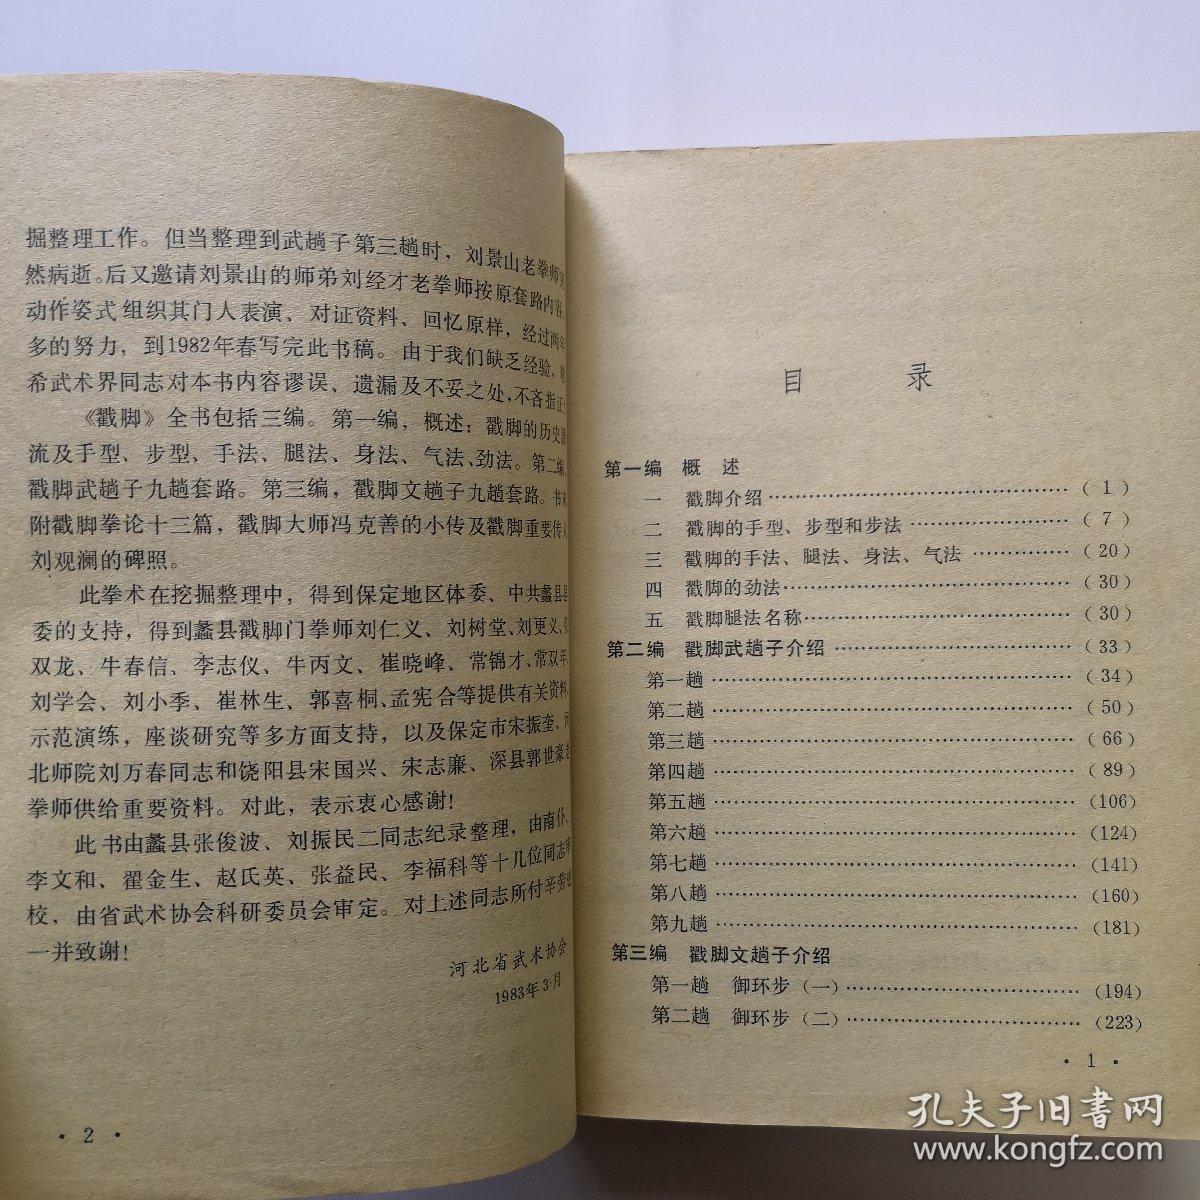 掘整理工作。但当整理到武趟子第三趟时，刘景山老拳师突
然病逝。后又邀请刘景山的师弟刘经才老拳师按原套路内容、
动作姿式组织其门人表演、对证资料、回忆原样，经过两年
多的努力，到1982年春写完此书稿。由于我们缺乏经验，
希武术界同志对本书内容谬误、遗漏及不妥之处，不吝指正
《戳脚》全书包括三编。第一编，概述：戳脚的历史源
流及手型、步型、手法、腿法、身法、气法、劲法。第二编，
戳脚武趟子九趟套路。第三编，戳脚文趟子九趟套路。书末
附戳脚拳论十三篇，戳脚大师冯克善的小传及戳脚重要传人
刘观澜的碑照。
此拳术在挖掘整理中，得到保定地区体委、中共蠡县县
委的支持，得到蠡县戳脚门拳师刘仁义、刘树堂、刘更义、
双龙、牛春信、李志仪、牛丙文、崔晓峰、常锦才、常双年、
刘学会、刘小季、崔林生、郭喜桐、孟宪合等提供有关资料
示范演练，座谈研究等多方面支持，以及保定市宋振奎，河
北师院刘万春同志和饶阳县宋国兴、宋志廉、深县郭世豪老
拳师供给重要资料。对此，表示衷心感谢！
此书由蠡县张俊波、刘振民二同志纪录整理，由南仆、
李文和、翟金生、赵氏英、张益民、李福科等十几位同志审
校，由省武术协会科研委员会审定。对上述同志所付辛劳
一并致谢！
河北省武术协会
1983年3月
· 2 ·
目 录
第一编 概 述
一 戳脚介绍……………………………（ 1 ）
二 戳脚的手型、步型和步法……………（ 7 ）
三 戳脚的手法、腿法、身法、气法……………（20）
四 戳脚的劲法……………………………（30）
五 戳脚腿法名称……………………………（30）
第二编 戳脚武趟子介绍……………………………（33）
第一趟……………………………………（34）
第二趟……………………………………（50）
第三趟……………………………………（66）
第四趟……………………………………（89）
第五趟……………………………………（106）
第六趟……………………………………（124）
第七趟……………………………………（141）
第八趟……………………………………（160）
第九趟……………………………………（181）
第三编 戳脚文趟子介绍
第一趟 御环步（一）……………………………（194）
第二趟 御环步（二）……………………………（223）
· 1 ·
孔夫子旧书网
www.kongfz.com